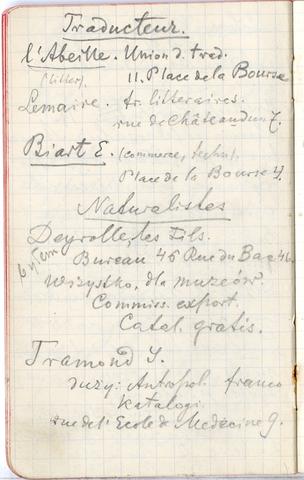 Traducteur.
l'Abeille. Union d. trad.
(litter). 11. Place de la Bourse
Lemaire. tr. litteraires.
rue de Châteaudun 7.
Biart E. (commerce, techn).
Place de la Bourse 4.
Naturalistes
Deyrolle, les Fils.
Bureau 46 Rue du Bac 46.
wszystko, dla muzeów.
Commiss. export.
Catal. gratis.
Tramond J.
duży: Antropol franco
Katalogi.
rue de l'Ecole de Medecine 9.